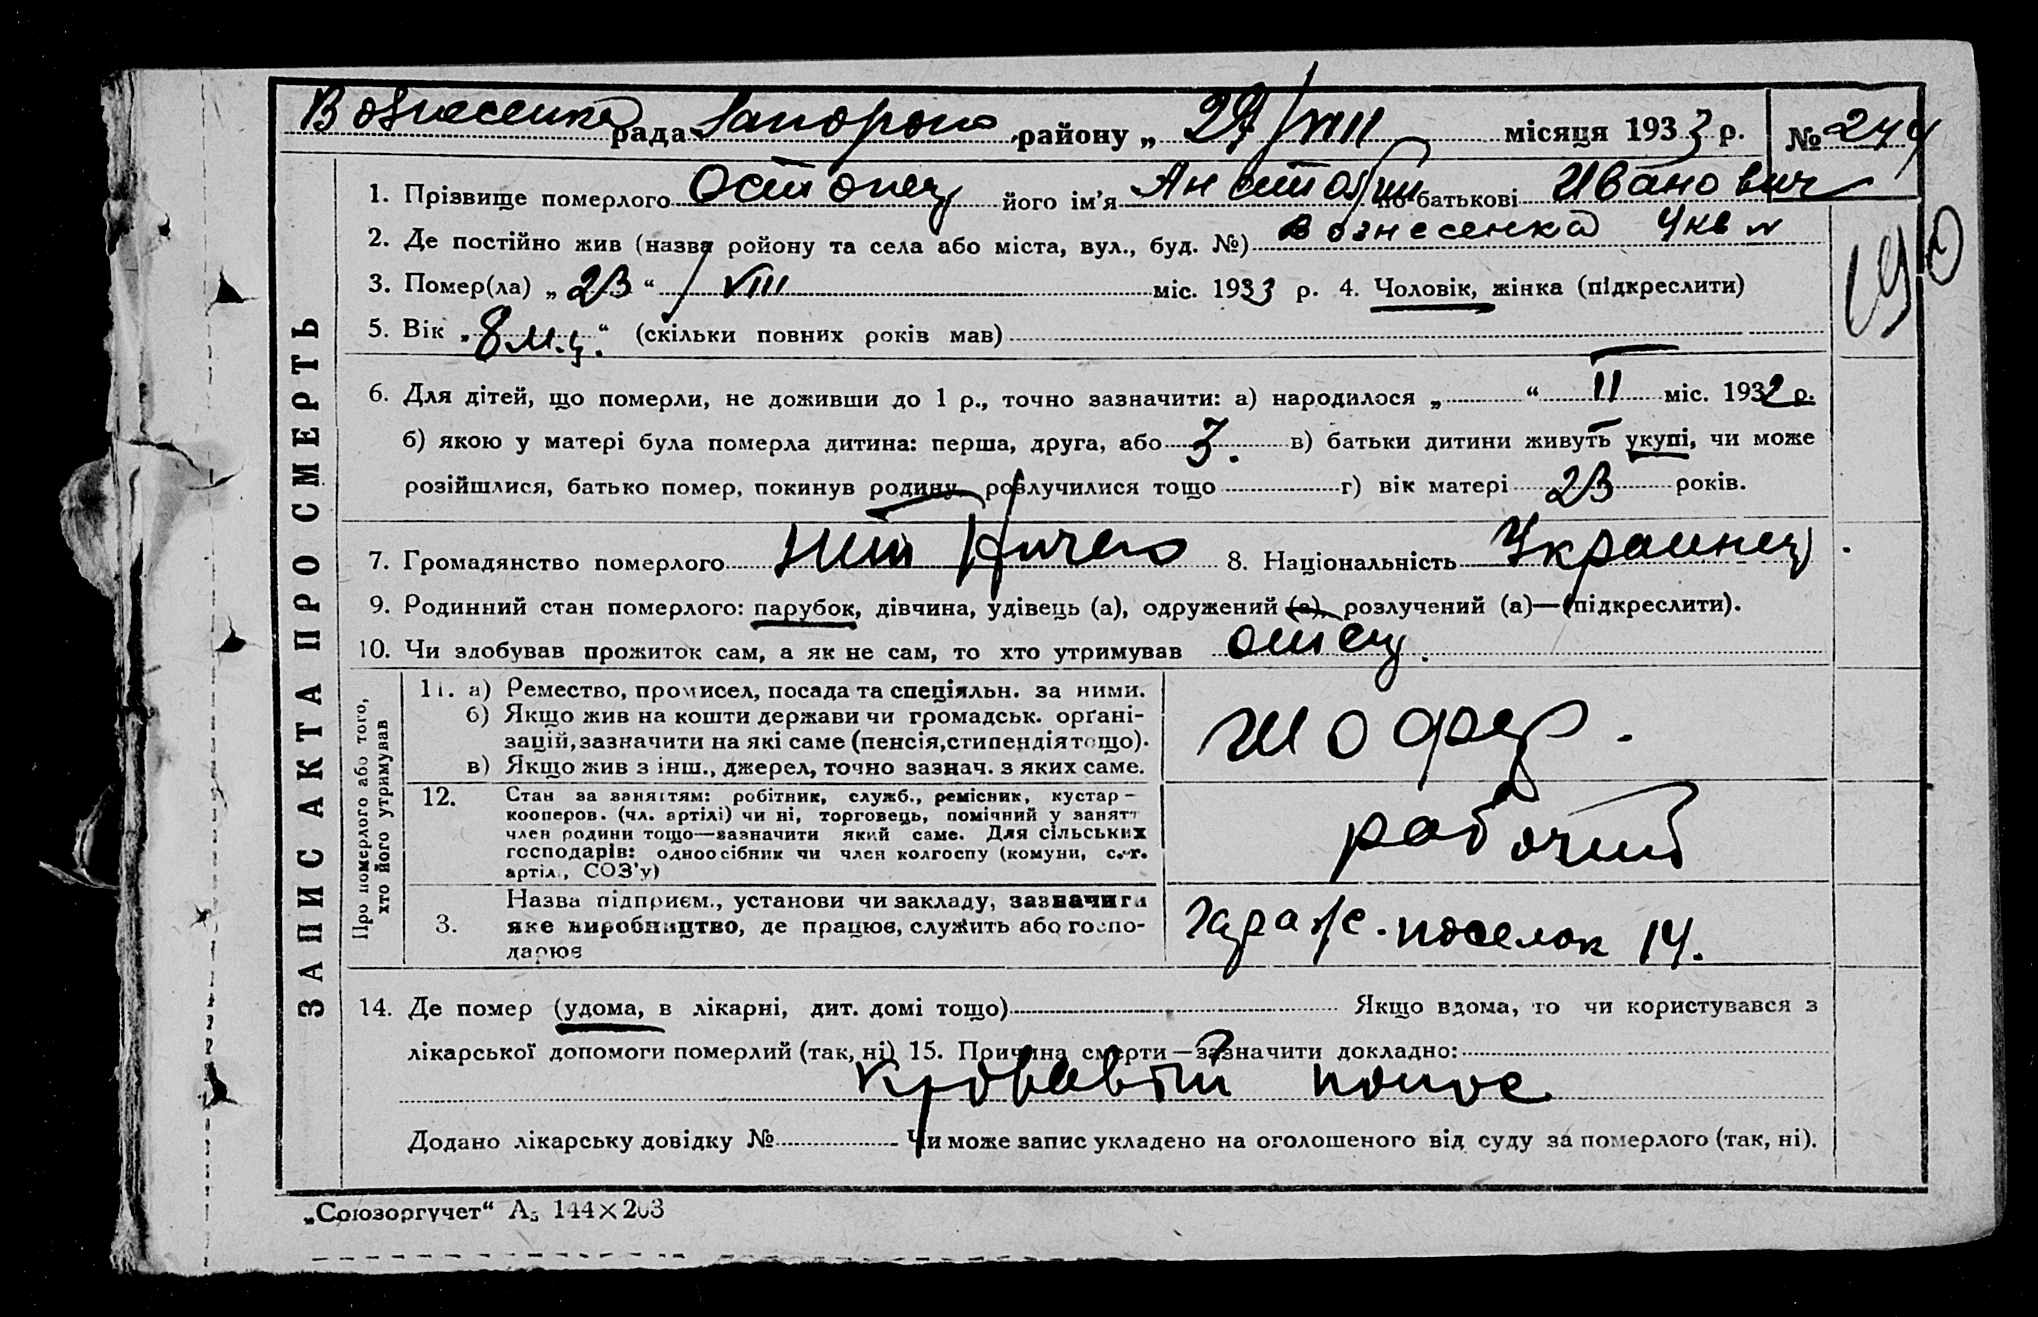 Вознесенка рада Запорож району „ 27/VIII місяця 1933 р. № 244
1. Прізвище померлого Остопец його ім'я Анатолий по батькові Иванович
2. Де постійно жив (назва ройону та села або міста, вул., буд. №) Вознесенка
3. Помер(ла) „ 23 “ VIII міс. 1933 р. 4. Чоловік, жінка (підкреслити)
190
5. Вік „ 8 м.ц. “ (скільки повних років мав)
6. Для дітей, що померли, не доживши до 1 р., точно зазначити: а) народилося „ “ II міс. 1932 р.
б) якою у матері була померла дитина: перша, друга, або 3. в) батьки дитини живуть укупі, чи може
розійшлися, батько помер, покинув родину, розлучилися тощо г) вік матері 23 років.
7. Громадянство померлого 8. Національність Украинец
9. Родинний стан померлого: парубок, дівчина, удівець (а), одружений (а), розлучений (а)—(підкреслити).
10. Чи здобував прожиток сам, а як не сам, то хто утримував отец.
ЗАПИС АКТА ПРО СМЕРТЬ
Про померлого або того,
хто його утримував
11. а) Ремество, промисел, посада та спеціяльн. за ними.
б) Якщо жив на кошти держави чи громадськ. орґані-
зацій, зазначити на які саме (пенсія, стипендія тощо).
в) Якщо жив з інш., джерел, точно зазнач. з яких саме.
шофер.
12. Стан за заняттям: робітник, служб., ремісник, кустар-
кооперов. (чл. артілі) чи ні, торговець, помічний у занятт
член родини тощо—зазначити який саме. Для сільських
господарів: одноосібник чи член колгоспу (комуни, с.-г.
артіл., СОЗ'у)
рабочий
3. Назва підприєм., установи чи закладу, зазначити
яке виробництво, де працює, служить або госпо-
дарює
гараж. поселок 14.
14. Де помер (удома, в лікарні, дит. домі тощо) Якщо вдома, то чи користувався з
лікарської допомоги померлий (так, ні) 15. Причина смерти—зазначити докладно:
кровавый понос
Додано лікарську довідку № Чи може запис укладено на оголошеного від суду за померлого (так, ні).
„Союзоргучет“ А5 144×203